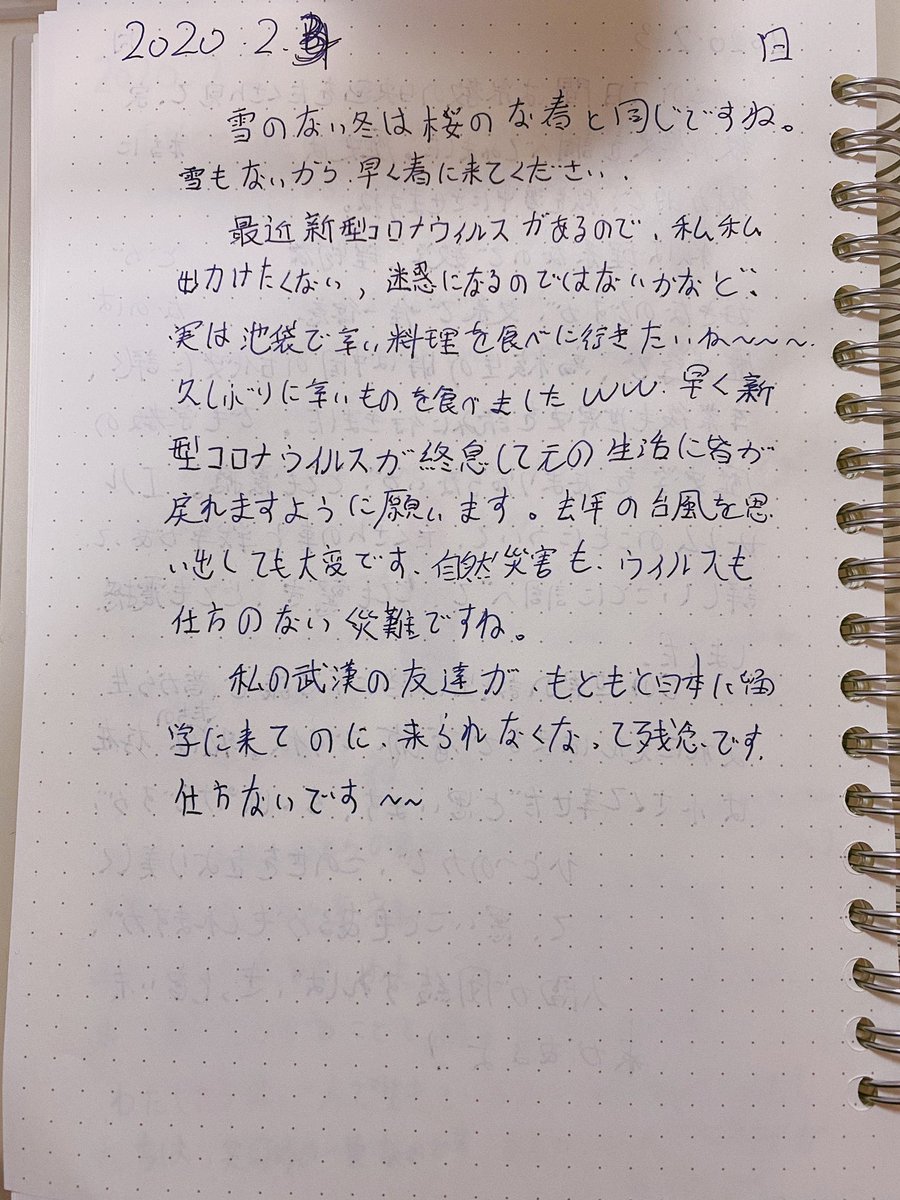 2020.2. 日
雪のない冬は桜のな春と同じですね。
雪もないから、早く春に来てください.
最近新型コロナウィルスがあるので、私私
出かけたくない, 迷惑になるのではないかなど、
実は池袋で辛い料理を食べに行きたいね〜〜〜.
久しぶりに辛いものを食べましたwww. 早く新
型コロナウイルスが終息して元の生活に皆が
戻れますように願います。去年の台風を思
い出しても大変です、自然災害も、ウイルスも
仕方のない災難ですね。
私の武漢の友達が、もともと日本に留
学に来てのに、来られなくなって残念です.
仕方ないです〜〜